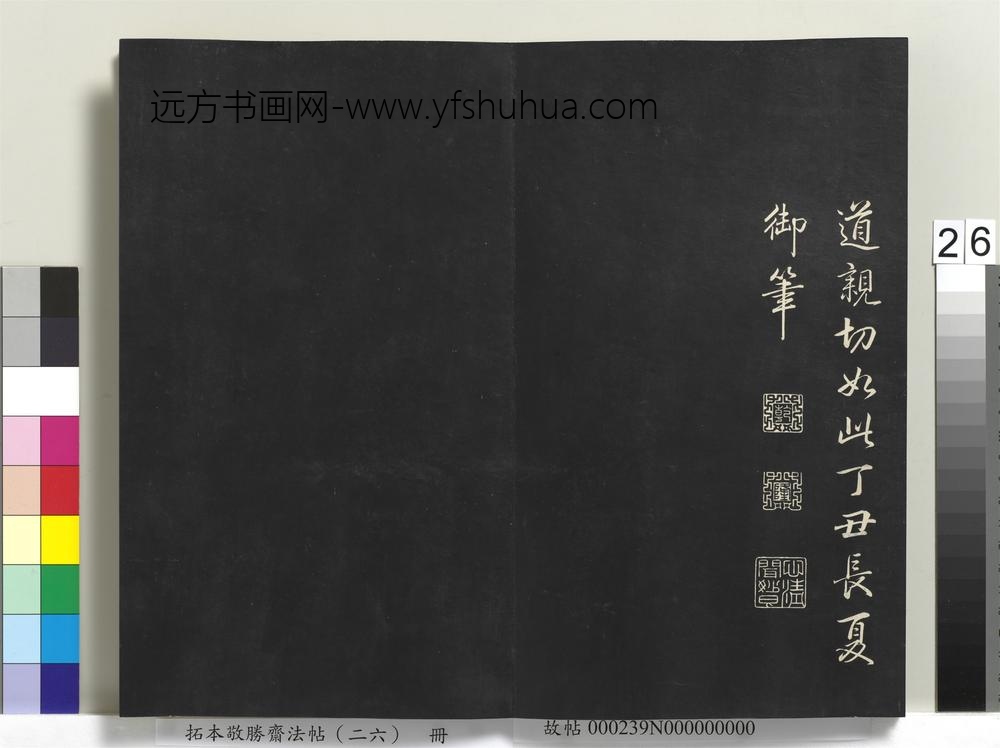 远方书画网-www.yfshuhua.com
道親切如此丁丑長夏
御筆
乾
隆
心清聞妙香
26
拓本敬勝齋法帖（二六） 冊
故帖 000239N000000000